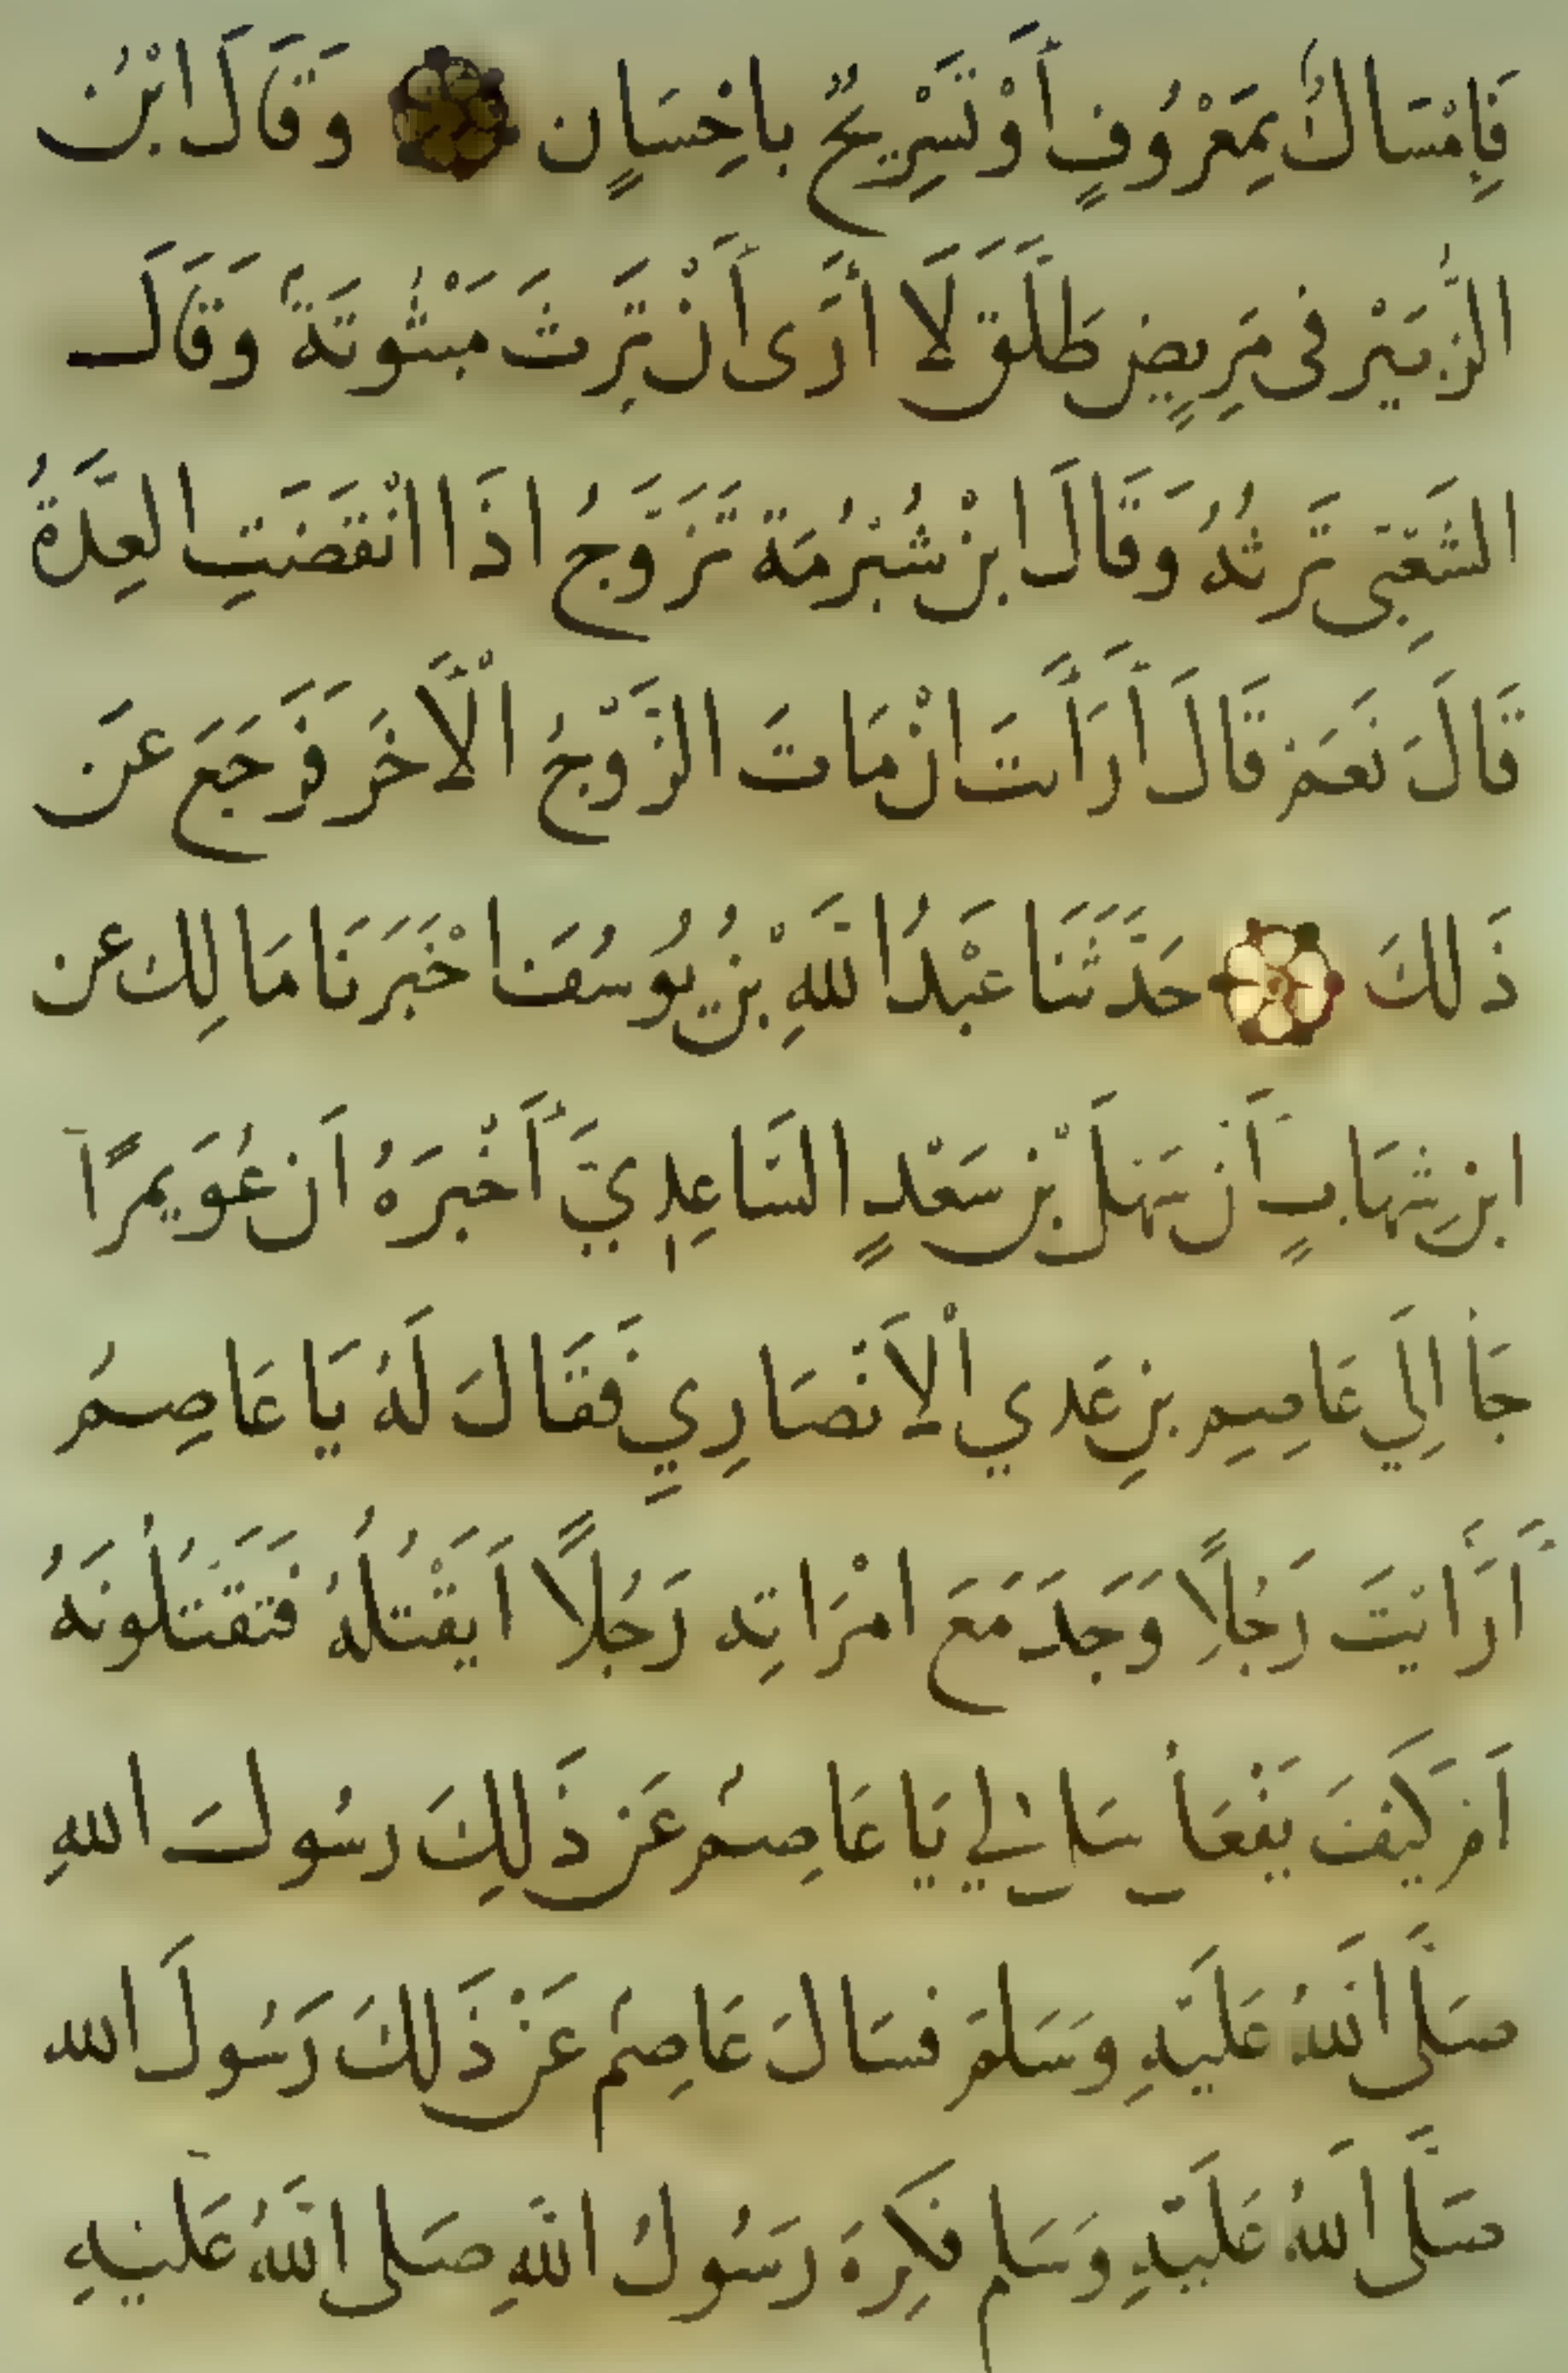 فَاِمْسَاكٌ بِمَعْرُوفٍ أَوْ تَسْرِيحٌ بِاحْسَانٍ وَقَالَ ابْنُ
الزُّبَيْرِ فى مَرِيضٍ طَلَّقَ لَا أَرَى أَنْ تَرِثَ مَبْتُوتَةٌ وَقَالَ
الشَّعْبِى تَرِثُهُ وَقَالَ ابْنُ شُبْرُمَة تَزَوَّجُ اذَا انْقَضَتِ العِدَّةُ
قَالَ نَعَمْ قَالَ أَرَأَيتَ انْ مَاتَ الزَّوْجُ الْآخَر فَرَجَعَ عَن
ذَلكَ حَدَّثَنَا عَبْدُ اللهِ بْنُ يُوسُفَ اخْبَرَنَا مَالِك عن
ابنِ شِهَابٍ أَنَّ سَهْلَ بْنَ سَعْدٍ السَّاعِدِيَّ أَخْبَرَهُ اَن عُوَيمرًا
جَأ اِلَي عَاصِمِ بنِ عَدي الْاَنْصَارِيِ فَقَالَ لَهُ يَا عَاصِمُ
أَرَأَيْتَ رَجُلًا وَجَدَ مَعَ امْرَاتِه رَجُلًا اَيَقْتُلُهُ فَتَقْتُلُونَهُ
اَم كَيْفَ يَفْعَلُ سَل لِي يَا عَاصِمُ عَن ذَلِكَ رسُولَ اللهِ
صَلَّى اللهُ عَلَيْهِ وَسَلمَ فسَالَ عَاصِمُ عَنْ ذَلكَ رَسُولَ الله
صَلَّى اللهُ عَلَيْهِ وَسَلم فكَرِهَ رَسُولُ اللهِ صَلى اللهُ عَليهِ